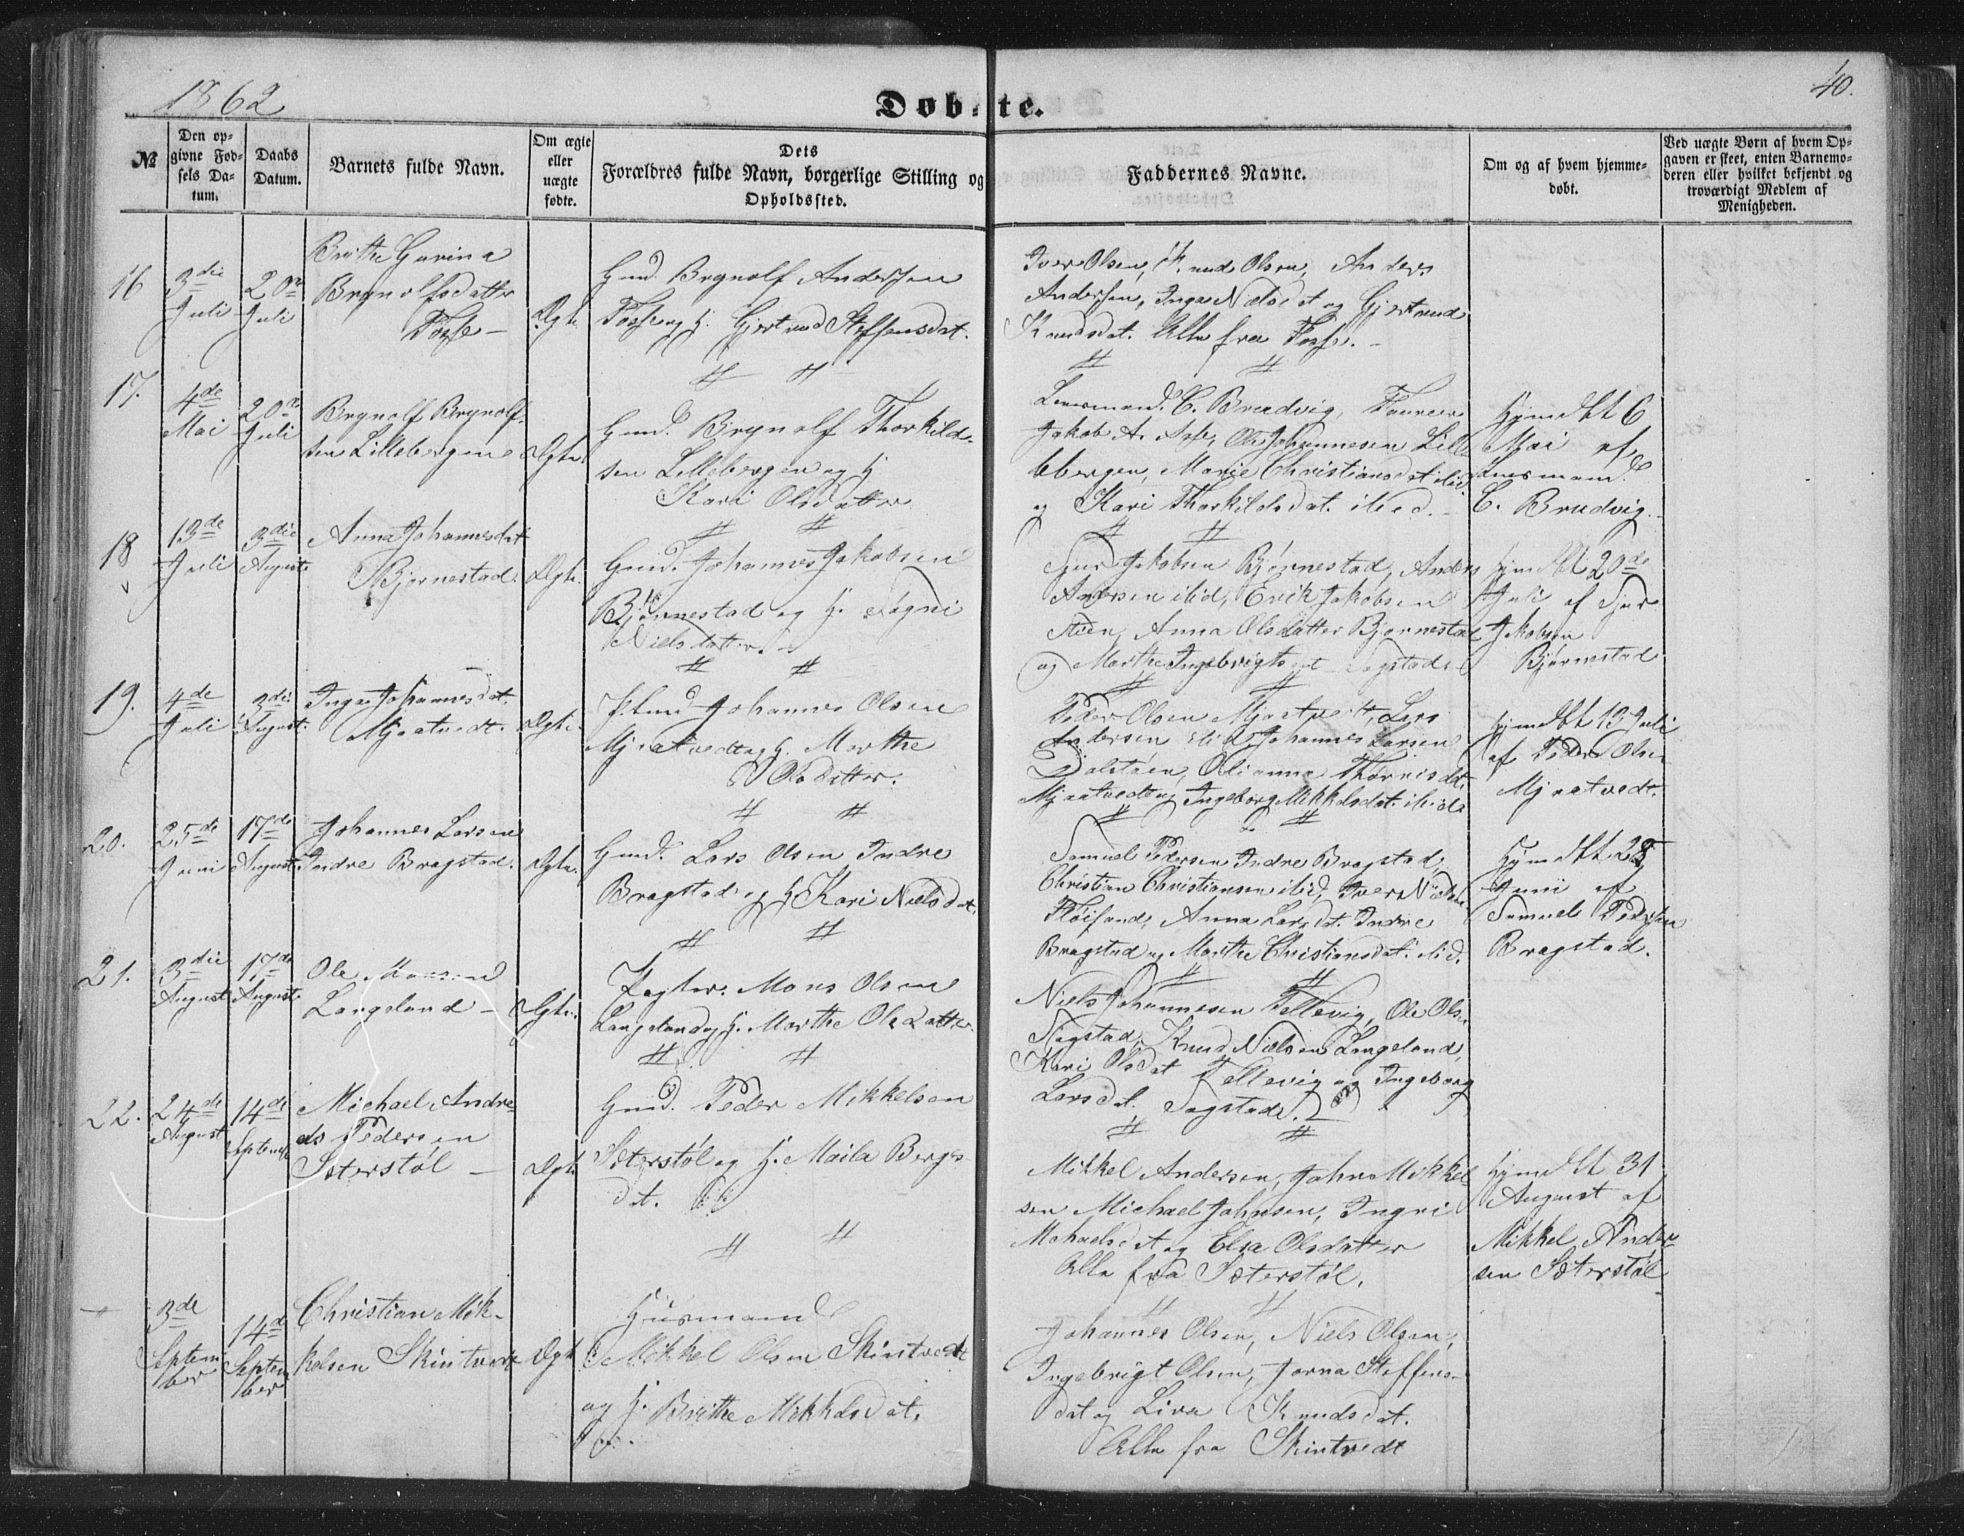 1862
Døbte.
40.
№
Den op-
givne Fød-
sels Da-
tum.
Daabs
Datum.
Barnets fulde Navn.
Om ægte
eller
uægte
fødte.
Dets
Forældres fulde Navn, borgerlige Stilling og
Opholdssted.
Faddernes Navne.
Om og af hvem hjemme-
døbt.
Ved uægte Børn af hvem Op-
gaven er skeet, enten Barnemo-
deren eller hvilket bekjendt og
troværdigt Medlem af
Menigheden.
16
3die
Juli
20de
Juli
Brithe Gurina
Brynolfsdatter
Fosse
Ægte.
Gmd. Brynolf Andersen
Fosse og H. Gjertrud Steffensdat.
Iver Olsen, Knud Olsen, Anders
Andersen, Inga Nielsdat og Gjertrud
Knudsdat. Alle fra Fosse.
17.
4de
Mai
20de
Juli
Brynolf Brynolf-
sen Lillebergen
Ægte.
Gmd. Brynolf Thorkild-
sen Lillebergen og H.
Kari Olsdatter
Lensmand C. Brudvig,
Jakob A. Ole Johannesen Lill
ebergen, Marie Christiansdat ibid
og Kari Thorkildsdat. ibid.
Hjmdbt 6
Mai af
Lensmand
C. Brudvig.
18
13de
Juli
3die
August.
Anna Johannesdat
Bjørnestad.
Ægte.
Gmd. Johannes Jakobsen
Bjørnestad og H. Sygni
Nielsdatter.
Sjur Jakobsen Bjørnestad, Anders
Andersen ibid, Erik Jakobsen
Steen, Anna Olsdatter Bjørnestad
og Marthe Ingebrigtsdat Sagstad.
Hjmdbt 20de
Juli af Sjur
Jakobsen
Bjørnestad
19.
4de
Juli
3die
August.
Inga Johannesdat.
Mjaatvedt.
Ægte.
Johannes Olsen
Mjaatvedt og H. Marthe
Olsdatter.
Peder Olsen Mjaatvedt, Lars
Andersen ibid, Johannes Larsen
Dalstøen, Olianna
Mjaatvedt og Ingeborg Mikkelsdat. ibid
Hjmdbt 13 Juli
af Peder Olsen
Mjaatvedt.
20.
25de
Juni
17de
August
Johannes Larsen
Indre Bragstad.
Ægte.
Gmd. Lars Olsen Indre
Bragstad og H. Kari Nielsdat.
Samuel Pedersen Indre Bragstad,
Christian Christiansen ibid, Iver Nielsen
Fløisand, Anna Larsdat. Indre
Bragstad og Marthe Christiansdat. ibid.
Hjmdbt 28
Juni af
Samuel Pedersen
Bragstad.
21.
3die
August
17de
August.
Ole Monsen
Langeland
Ægte.
Mons Olsen
Langeland og H. Marthe Olsdatter.
Niels Johannesen Tellevig, Ole Olsen
Sagstad, Knud Nielsen Langeland,
Kari Olsdat Tellevig og Ingeborg
Larsdat. Sagstad.
22.
24de
August
14de
September
Michael Andre
as Pedersen
Sæterstøl
Ægte.
Gmd. Peder Mikkelsen
Sæterstøl og H. Maila Berges-
dat.
Mikkel Andersen, John Mikkel-
sen Michael Johnsen, Ingri
Michaelsdat og Elsa Olsdatter
Alle fra Sæterstøl.
Hjmdbt 31
August af
Mikkel Ander-
sen Sæterstøl
3de
Septem-
ber
14de
Septem
ber
Christian Mik-
kelsen Skintvedt
Ægte
Husmand
Mikkel Olsen Skintvedt
og H. Brithe Mikkelsdat.
Johannes Olsen, Niels Olsen,
Ingebrigt Olsen, Jorna Steffens-
dat og Liva Knudsdat.
Alle fra Skintvedt